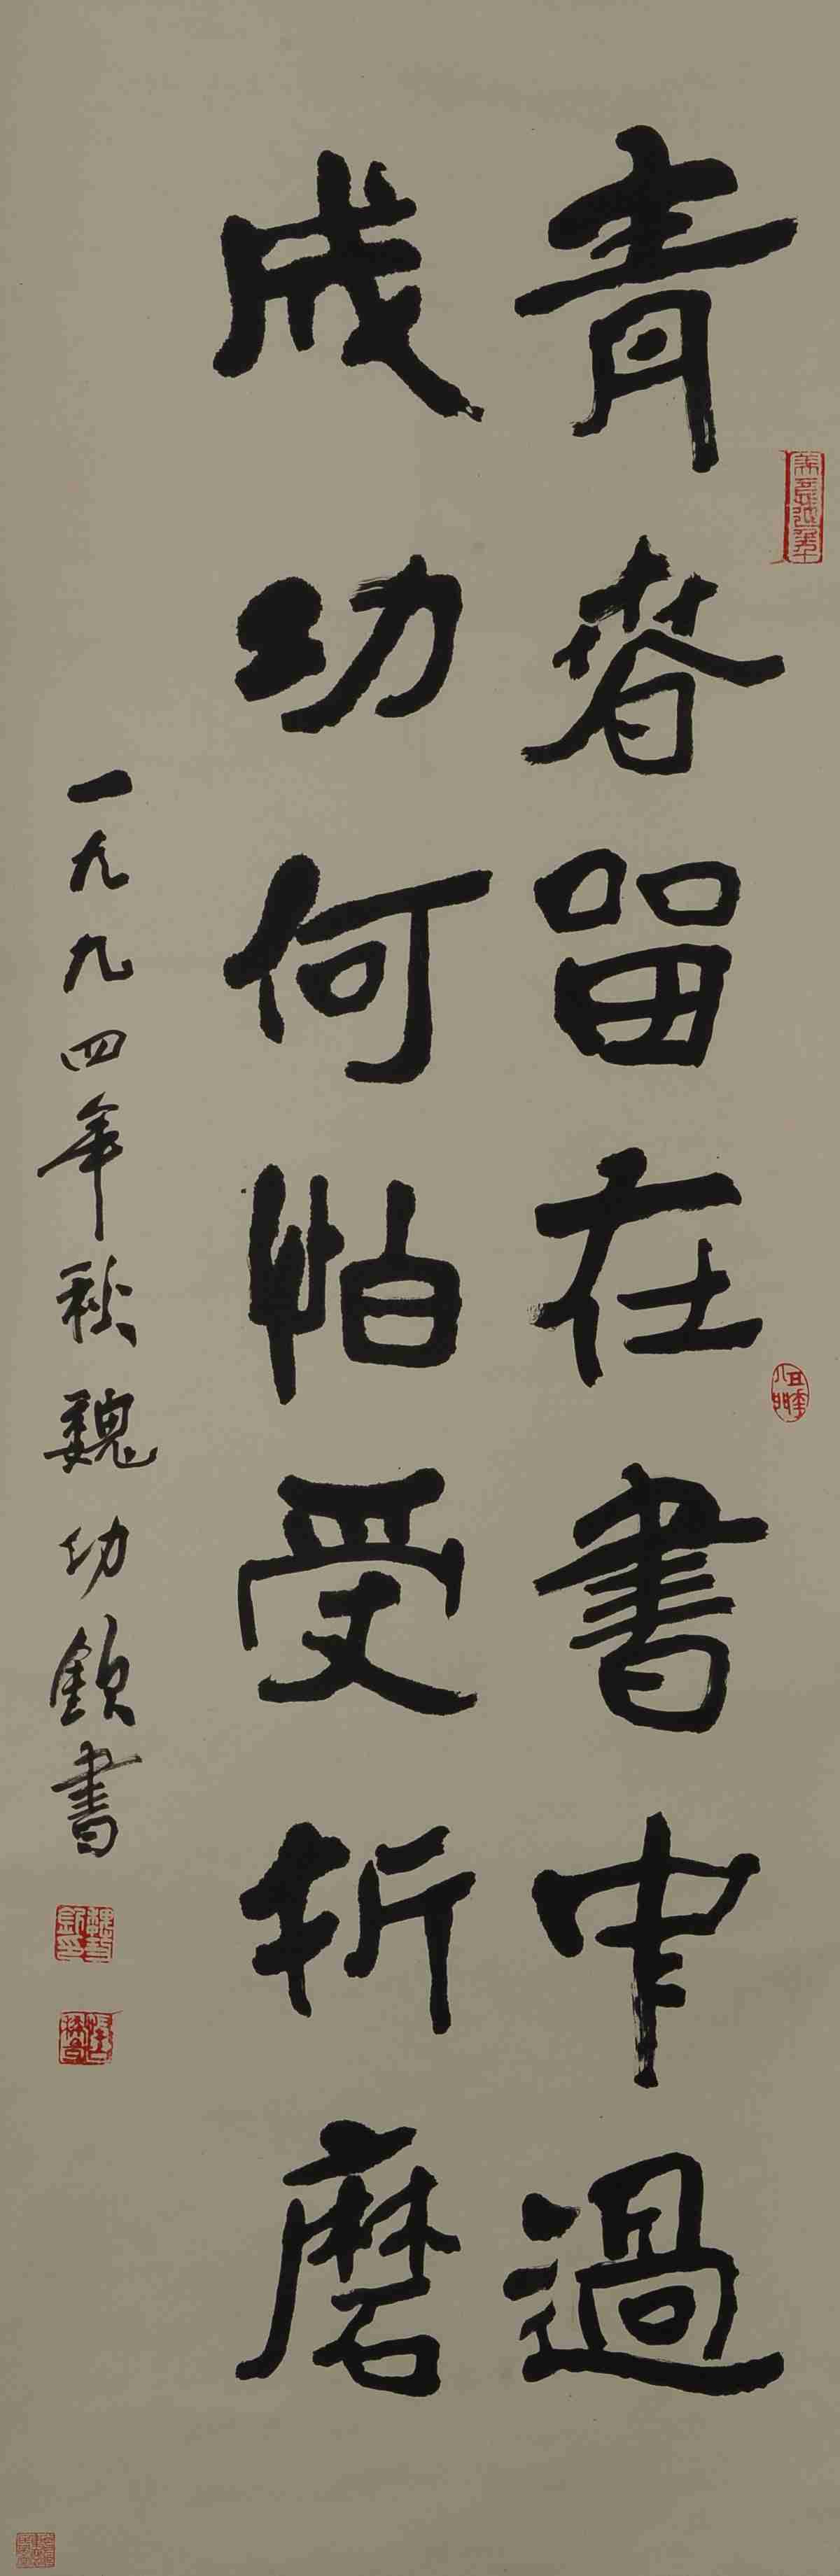 青春留在書中過
成功何怕受折磨
一九九四年秋魏功欽書